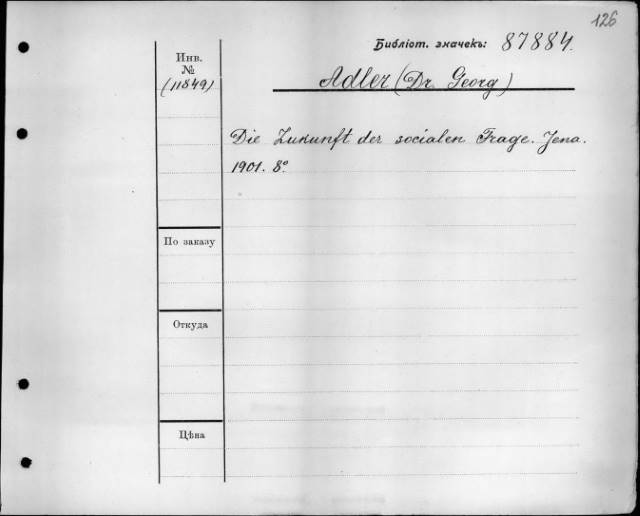 126
Библіот. значекъ: 87884.
Инв.
№
(11849)
Adler (Dr. Georg)
Die Zukunft der socialen Frage. Jena.
1901. 8°
По заказу
Откуда
Цѣна